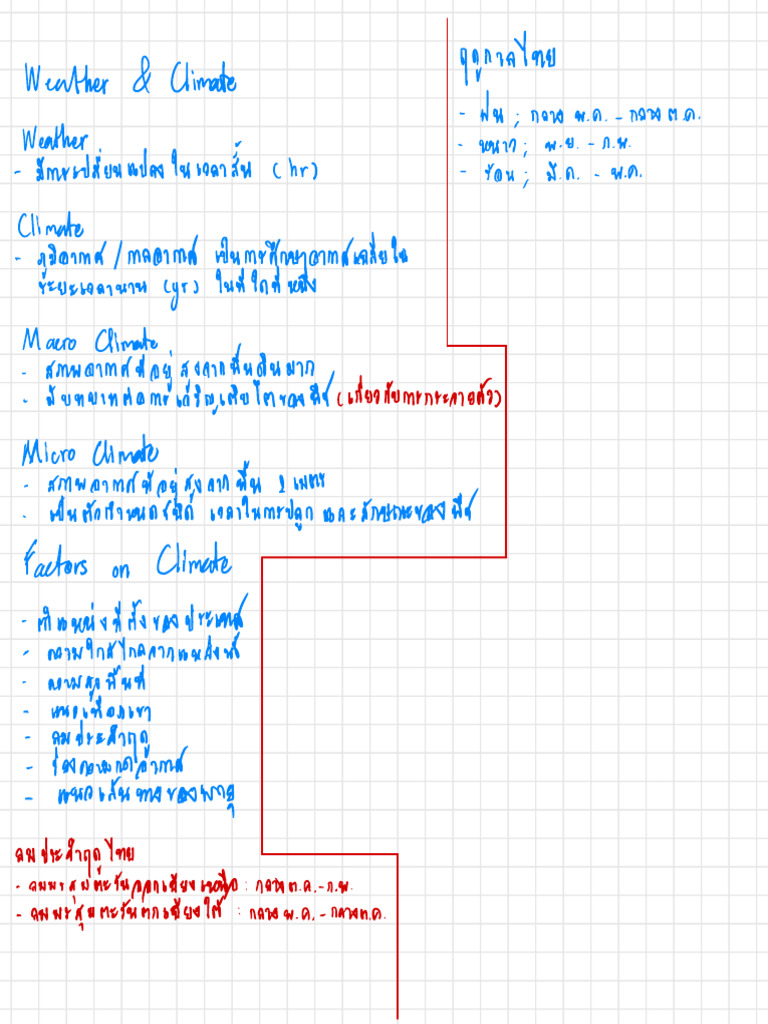 Weather & Climate
Weather
- มีการเปลี่ยนแปลงในเวลาสั้น (hr)
Climate
- ภูมิอากาศ / กาลอากาศ เป็นการศึกษาอากาศเฉลี่ยใน
ระยะเวลานาน (yr) ในที่ใดที่หนึ่ง
Macro Climate
- สภาพอากาศที่อยู่สูงจากพื้นดินมาก
- มีบทบาทต่อการเจริญเติบโตของพืช (เกี่ยวกับการกระจายตัว)
Micro Climate
- สภาพอากาศที่อยู่สูงจากพื้น 2 เมตร
- เป็นตัวกำหนดชนิด เวลาในการปลูก และลักษณะของพืช
Factors on Climate
- ตำแหน่งที่ตั้งของประเทศ
- ความใกล้ไกลจากแหล่งน้ำ
- ความสูงพื้นที่
- แนวเทือกเขา
- ลมประจำฤดู
- ร่องความกดอากาศ
- แนวเส้นทางของพายุ
ลมประจำฤดูไทย
- ลมมรสุมตะวันออกเฉียงเหนือ : กลางต.ค. - ก.พ.
- ลมมรสุมตะวันตกเฉียงใต้ : กลาง พ.ค. - กลางต.ค.
ฤดูกาลไทย
- ฝน ; กลาง พ.ค. - กลาง ต.ค.
- หนาว ; พ.ย. - ก.พ.
- ร้อน ; มี.ค. - พ.ค.